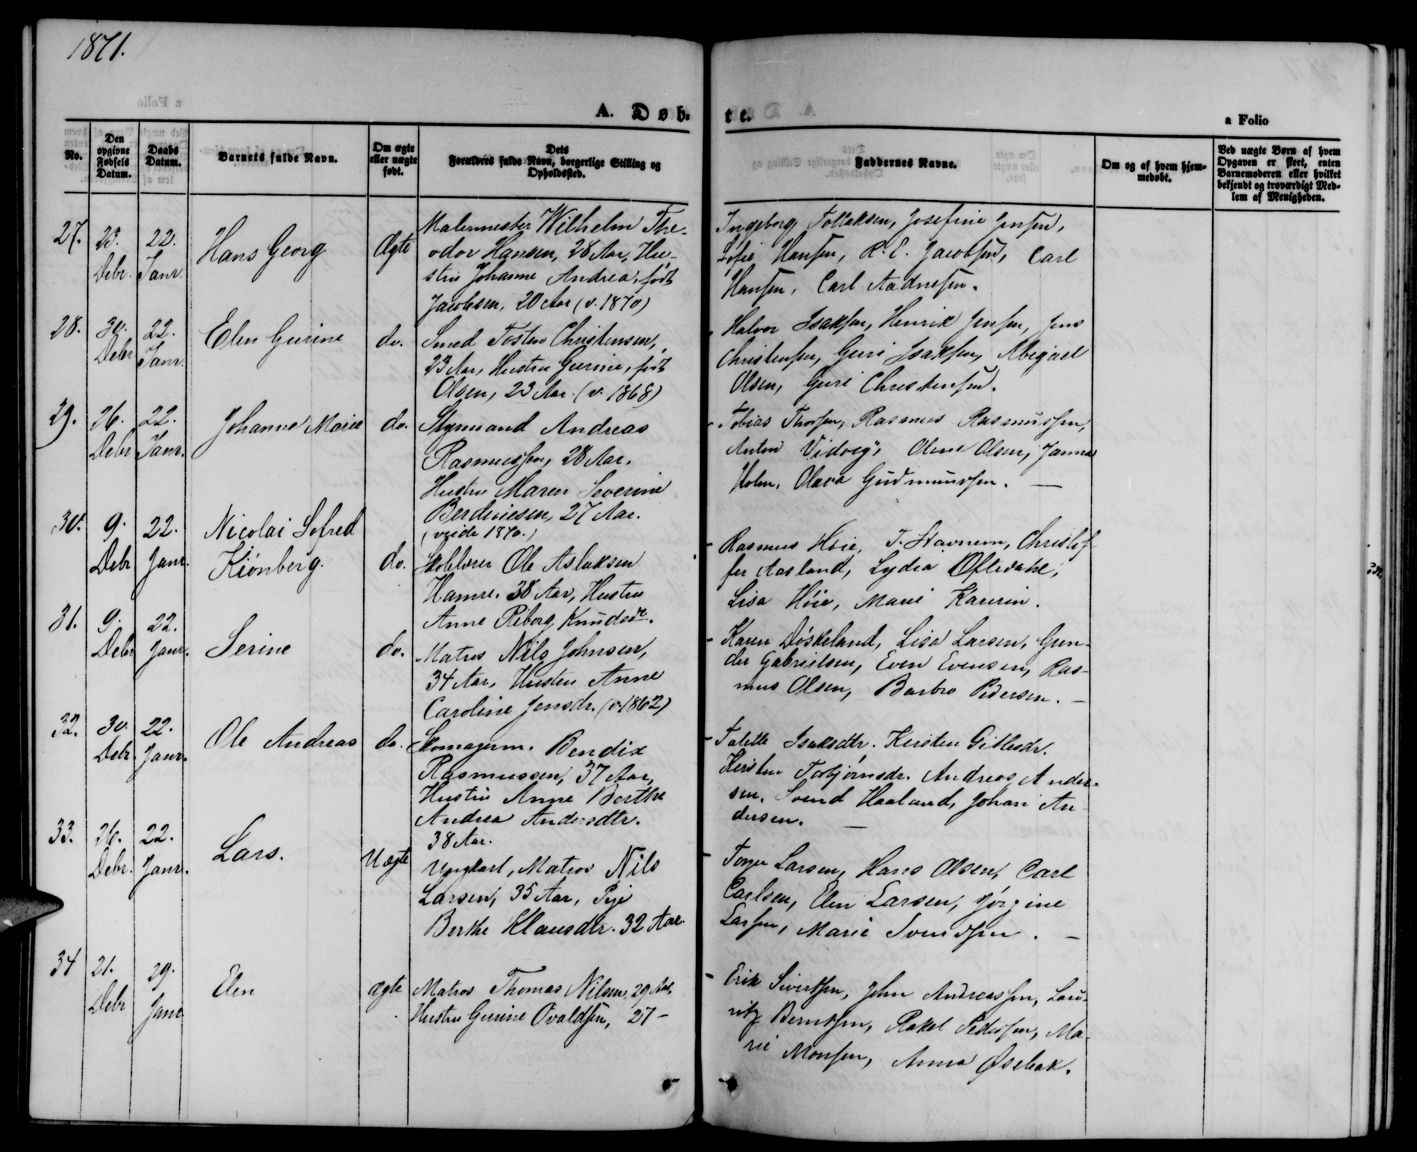 1871.
A. Døb-
te.
a Folio
No.
Den opgivne Fødsels Datum.
Daabs Datum.
Barnets fulde Navn.
Om ægte eller uægte født.
Dets Forældres fulde Navn, borgerlige Stilling og Opholdssted.
Faddernes Navne.
Om og af hvem hjemmedøbt.
Ved uægte Børn af hvem Opgaven er skeet, enten Barnemoderen eller hvilket bekjendt og troværdigt Medlem af Menigheden.
27. 23. Debr. 22. Janr. Hans Georg Ægte
Malermester Wilhelm The-
odor Hansen, 28 Aar, Hu-
stru Johanne Andrea, født
Jacobsen, 20 Aar (v. 1870)
Ingeborg Tollaksen, Josefine Jensen,
Sofie Hansen, R. E. Jacobsen, Carl
Hansen, Carl Aadnesen.
28. 30. Debr 22. Janr. Elen Gurine do.
Smed Tosten Christensen,
23 Aar, Hustru Gurine, født
Olsen, 23 Aar. (v. 1868)
Halvor Isaksen, Henrik Jensen, Jens
Christensen, Guri Isaksen, Abigael
Olsen, Guri Christensen.
29. 26. Debr 22. Janr. Johanne Marie do.
Styrmand Andreas
Rasmussen, 28 Aar,
Hustru Maren Severine
Berdiniesen, 27 Aar.
1870.)
Tobias Thorsen, Rasmus Rasmussen,
Anton Olene Olsen, Janna
Holm, Olava Gudmundsen.
30. 9. Debr 22. Janr. Nicolai Sofred
Kiønberg. do.
Skolelærer Ole Aslaksen
Hamre. 38 Aar, Hustru
Anne Reborg Knudsdr.
Rasmus Høie, T. Stavnem, Christof-
fer Aasland, Lydia Oftedahl,
Lisa Høie, Marie
31. 9. Debr 22. Janr. Serine do.
Matros Nils Johnsen,
34 Aar, Hustru Anne
Caroline Jensdr. (v 1862)
Karen Døskeland, Lisa Larsen, Gun-
der Gabrielsen, Even Evensen, Ras-
mus Olsen, Barbro Pedersen.
32. 30. Debr. 22. Janr. Ole Andreas do.
Skomagerm. Bendix
Rasmussen, 37 Aar,
Hustru Anne Berthe
Andrea Andersdtr.
38 Aar.
Talette Isaksdtr. Kirsten Gitlesdr.
Kirsten Torbjørnsdr. Andreas Ander-
sen. Svend Haaland, Johan An-
dersen.
33. 26. Debr. 22. Janr. Lars. Uægte
Ungkarl, Matros Nils
Larsen, 35 Aar, Pige
Berthe Klausdtr. 32 Aar.
Torger Larsen, Hans Olsen, Carl
Carlsen, Elen Larsen, Jørgine
Larsen, Marie Svendsen.
34 21. Debr 29. Janr Elen ægte
Matros Thomas Nilsen, 29 Aar,
Hustru Gurine Ovaldsen, 27 -
Erik Sivertsen, John Andreassen, Lau-
ritz Berntsen, Rakel Pedersen, Ma-
rie Monsen, Anna Øsebak.